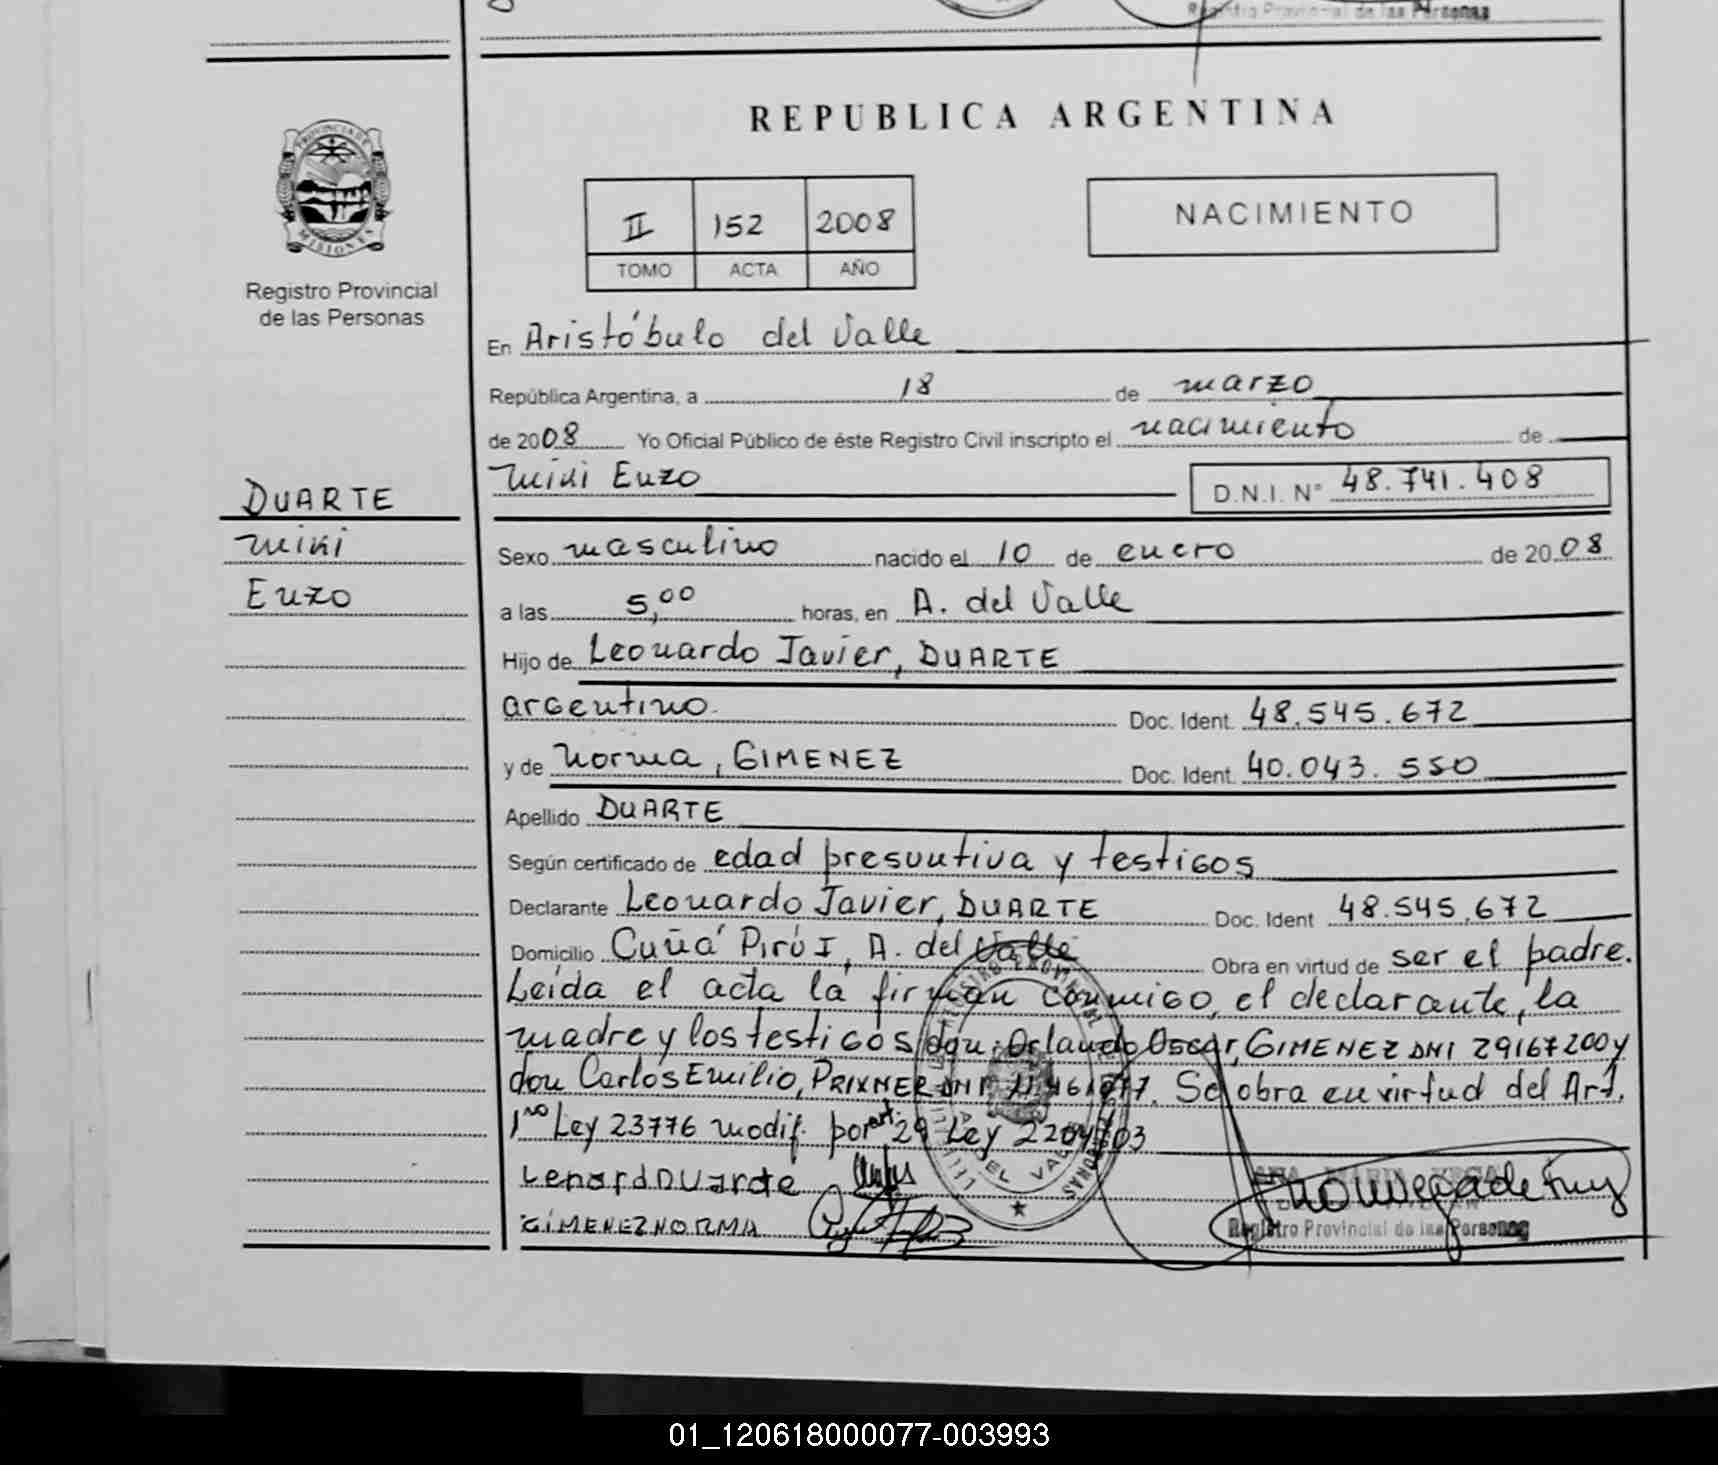 Registro Provincial de las Personas
REPUBLICA ARGENTINA
PROVINCIA DE
MISIONES
Registro Provincial
de las Personas
II 152 2008
TOMO ACTA AÑO
NACIMIENTO
En Aristóbulo del Valle
República Argentina, a 18 de marzo
de 2008 Yo Oficial Público de éste Registro Civil inscripto el nacimiento de
Miki Enzo D.N.I. N° 48.741.408
DUARTE
Miki
Enzo
Sexo masculino nacido el 10 de enero de 2008
a las 5,00 horas, en A. del Valle
Hijo de Leonardo Javier, DUARTE
argentino. Doc. Ident. 48.545.672
y de Norma, GIMENEZ Doc. Ident. 40.043.550
Apellido DUARTE
Según certificado de edad presuntiva y testigos
Declarante Leonardo Javier, DUARTE Doc. Ident 48.545.672
Domicilio Cuñá Pirú I, A. del Valle Obra en virtud de ser el padre.
Leída el acta la firman conmigo, el declarante, la
madre y los testigos don: Orlando Oscar, GIMENEZ DNI 29167200 y
don Carlos Emilio, PRIXNER DNI Se obra en virtud del Art.
1no Ley 23776 modif. por art. 29 Ley
Lenard Duarte
GIMENEZ NORMA
Registro Provincial de las Personas
01_120618000077-003993